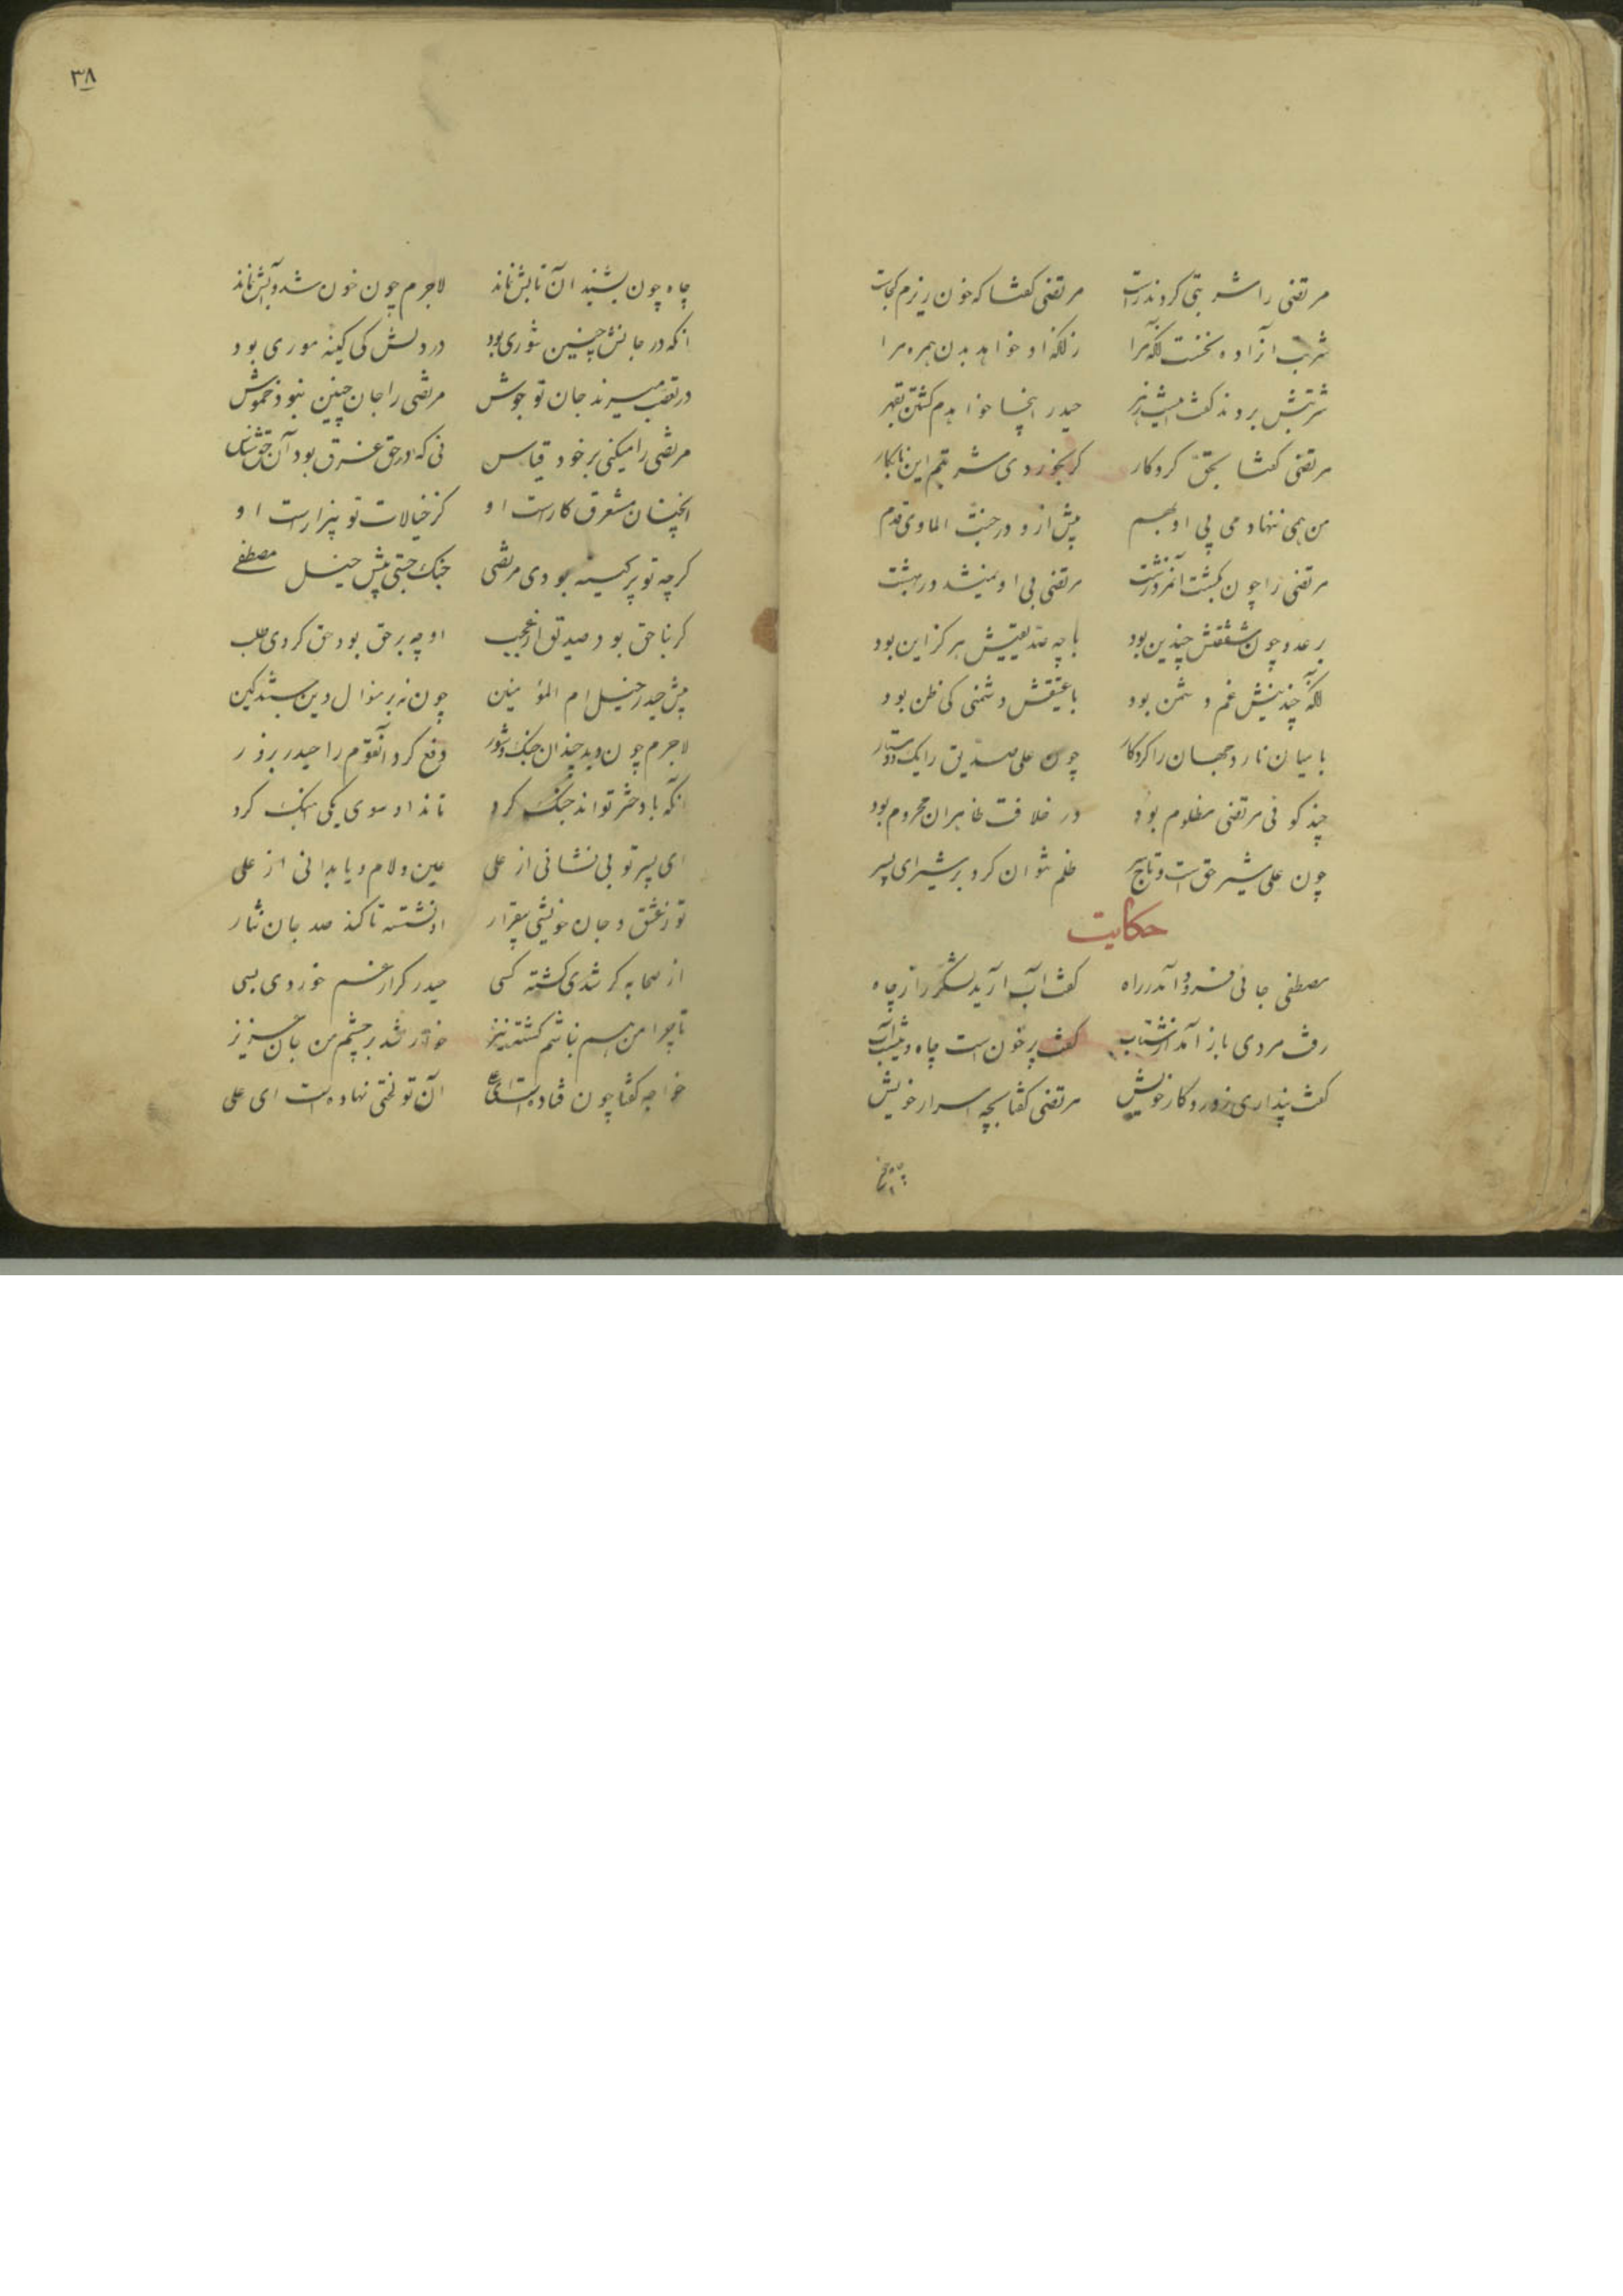 مرتضی را شربتی کردند راست مرتضی کفتا که خون ریزم کجاست
شربت او را ده نخست انکه مرا زانکه او خواهد بدن همره مرا
شربتش بردند کفت اینت زهر حیدر اینجا خواهدم کشتن بقهر
مرتضی کفتا بحق کردکار کر بخوردی شربتم این نابکار
من همی ننهادمی بی او بهم پیش از و در جنت الماوی قدم
مرتضی را چون بکشت آنمرد زشت مرتضی بی او نمیشد در بهشت
بر عدو چون شفقتش چندین بود با چه صدیقیش هرکز این بود
آنکه چندینیش غم دشمن بود با عتیقش دشمنی کی ظن بود
با میان نارد جهان را کردکار چون علی صدیق را یک دوستدار
چند کوئی مرتضی مظلوم بود در خلافت ظاهران محروم بود
چون علی شیر حق است و تاج سر ظلم نتوان کرد بر شیر ای پسر
حکایت
مصطفی جائی فرود آمد براه کفت آب آرید لشکر را ز چاه
رفت مردی باز آمد از شتاب کفت پر خون است چاه و نیست آب
کفت پنداری ز درد کار خویش مرتضی کفتا بچه اسرار خویش
چاه چون
٣٨
چاه چون بشنید آن تابش نماند لاجرم چون خون شد و آبش نماند
انکه در جانش چنین شوری بود در دلش کی کینه موری بود
در تعصب میزند جان تو جوش مرتضی را جان چنین نبود خموش
مرتضی را میکنی بر خود قیاس نی که در حق غرق بود آن حق شناس
انچنان مستغرق کارست او کز خیالات تو بیزارست او
کر چه تو پر کینه بودی مرتضی جنک جستی پیش خیل مصطفی
کر بناحق بود صدیق ای عجب او چو بر حق بود حق کردی طلب
پیش حیدر خیل ام المؤمنین چون نه بر منوال دین بستند کین
لاجرم چون دید چندان جنک و شور دفع کرد آنقوم را حیدر بزور
آنکه با دختر تواند جنک کرد تاند او سوی یکی آهنک کرد
ای پسر تو بی نشانی از علی عین و لام و یا بدانی از علی
تو ز عشق و جان خویشی بیقرار او نشسته تا کند صد جان نثار
از صحابه کر شدی کشته کسی حیدر کرار غم خوردی بسی
تا چرا من هم نباشم کشته نیز خوار شد بر چشم من جان عزیز
خواجه کفتا چون فتاده است ای علی آن تو لختی نهاده است ای علی